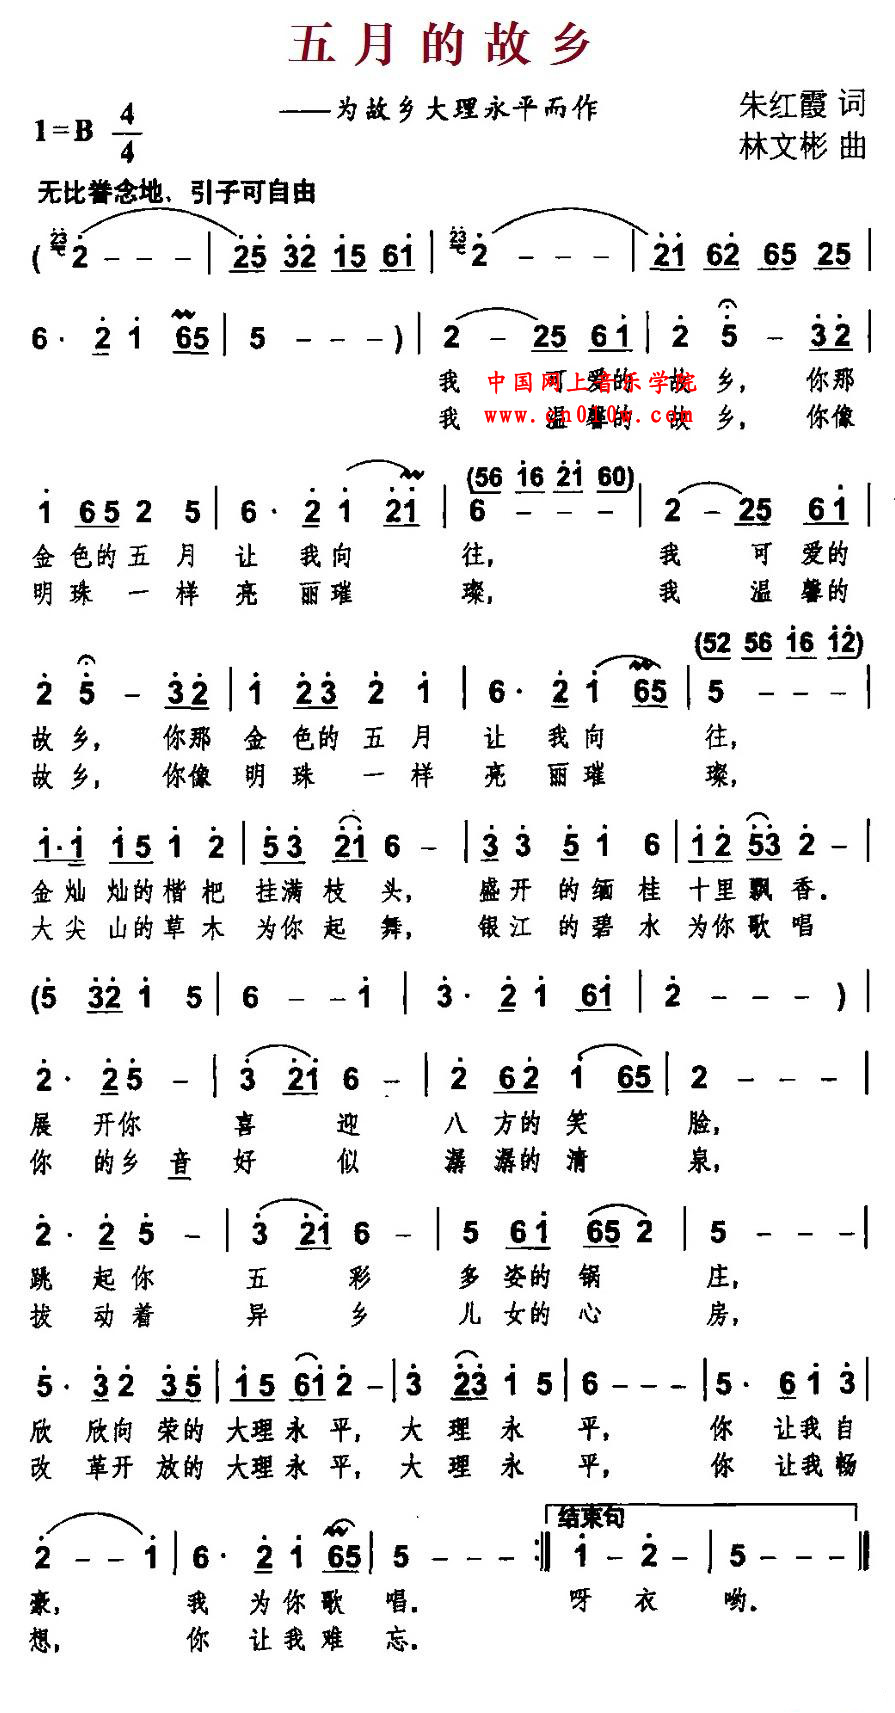 五月的故乡
——为故乡大理永平而作
朱红霞 词
林文彬 曲
1=B 4/4
无比誉念地、引子可自由
( 23 2 - - - | 25 32 15 61 | 23 2 - - - | 21 62 65 25 |
6· 2 1 65 | 5 - - - ) | 2 - 25 61 | 2 5 - 32 |
我 可爱的 故 乡, 你那
我 温馨的 故 乡, 你像
中国网上音乐学院
www.cn010w.com
(56 16 21 60)
1 65 2 5 | 6· 2 1 21 | 6 - - - | 2 - 25 61 |
金 色的 五 月 让 我 向 往, 我 可 爱的
明 珠 一 样 亮 丽 璀 璨, 我 温 馨的
(52 56 16 12)
2 5 - 32 | 1 23 2 1 | 6· 2 1 65 | 5 - - - |
故 乡, 你那 金 色的 五 月 让 我 向 往,
故 乡, 你像 明 珠 一 样 亮 丽 璀 璨,
1·1 15 1 2 | 53 21 6 - | 33 51 6 | 12 53 2 - |
金灿 灿的 楷 杷 挂满 枝 头, 盛开 的缅 桂 十里 飘 香.
大尖 山的 草 木 为你 起 舞, 银江 的碧 水 为你 歌 唱
(5 32 1 5 | 6 - - 1 | 3· 2 1 61 | 2 - - - ) |
2· 25 - | 3 21 6 - | 2 62 1 65 | 2 - - - |
展 开你 喜 迎 八 方的 笑 脸,
你 的乡 音 好 似 潺 潺的 清 泉,
2· 2 5 - | 3 21 6 - | 5 61 65 2 | 5 - - - |
跳 起你 五 彩 多 姿的 锅 庄,
拔 动着 异 乡 儿 女的 心 房,
5· 3 2 35 | 15 61 2 - | 3 23 1 5 | 6 - - - | 5· 6 1 3 |
欣 欣向 荣的 大理 永 平, 大 理 永 平, 你 让我 自
改 革开 放的 大理 永 平, 大 理 永 平, 你 让我 畅
结束句
2 - - 1 | 6· 2 1 65 | 5 - - - :|| 1 - 2 - | 5 - - - ||
豪, 我 为 你 歌 唱. 呀 衣 哟.
想, 你 让 我 难 忘.